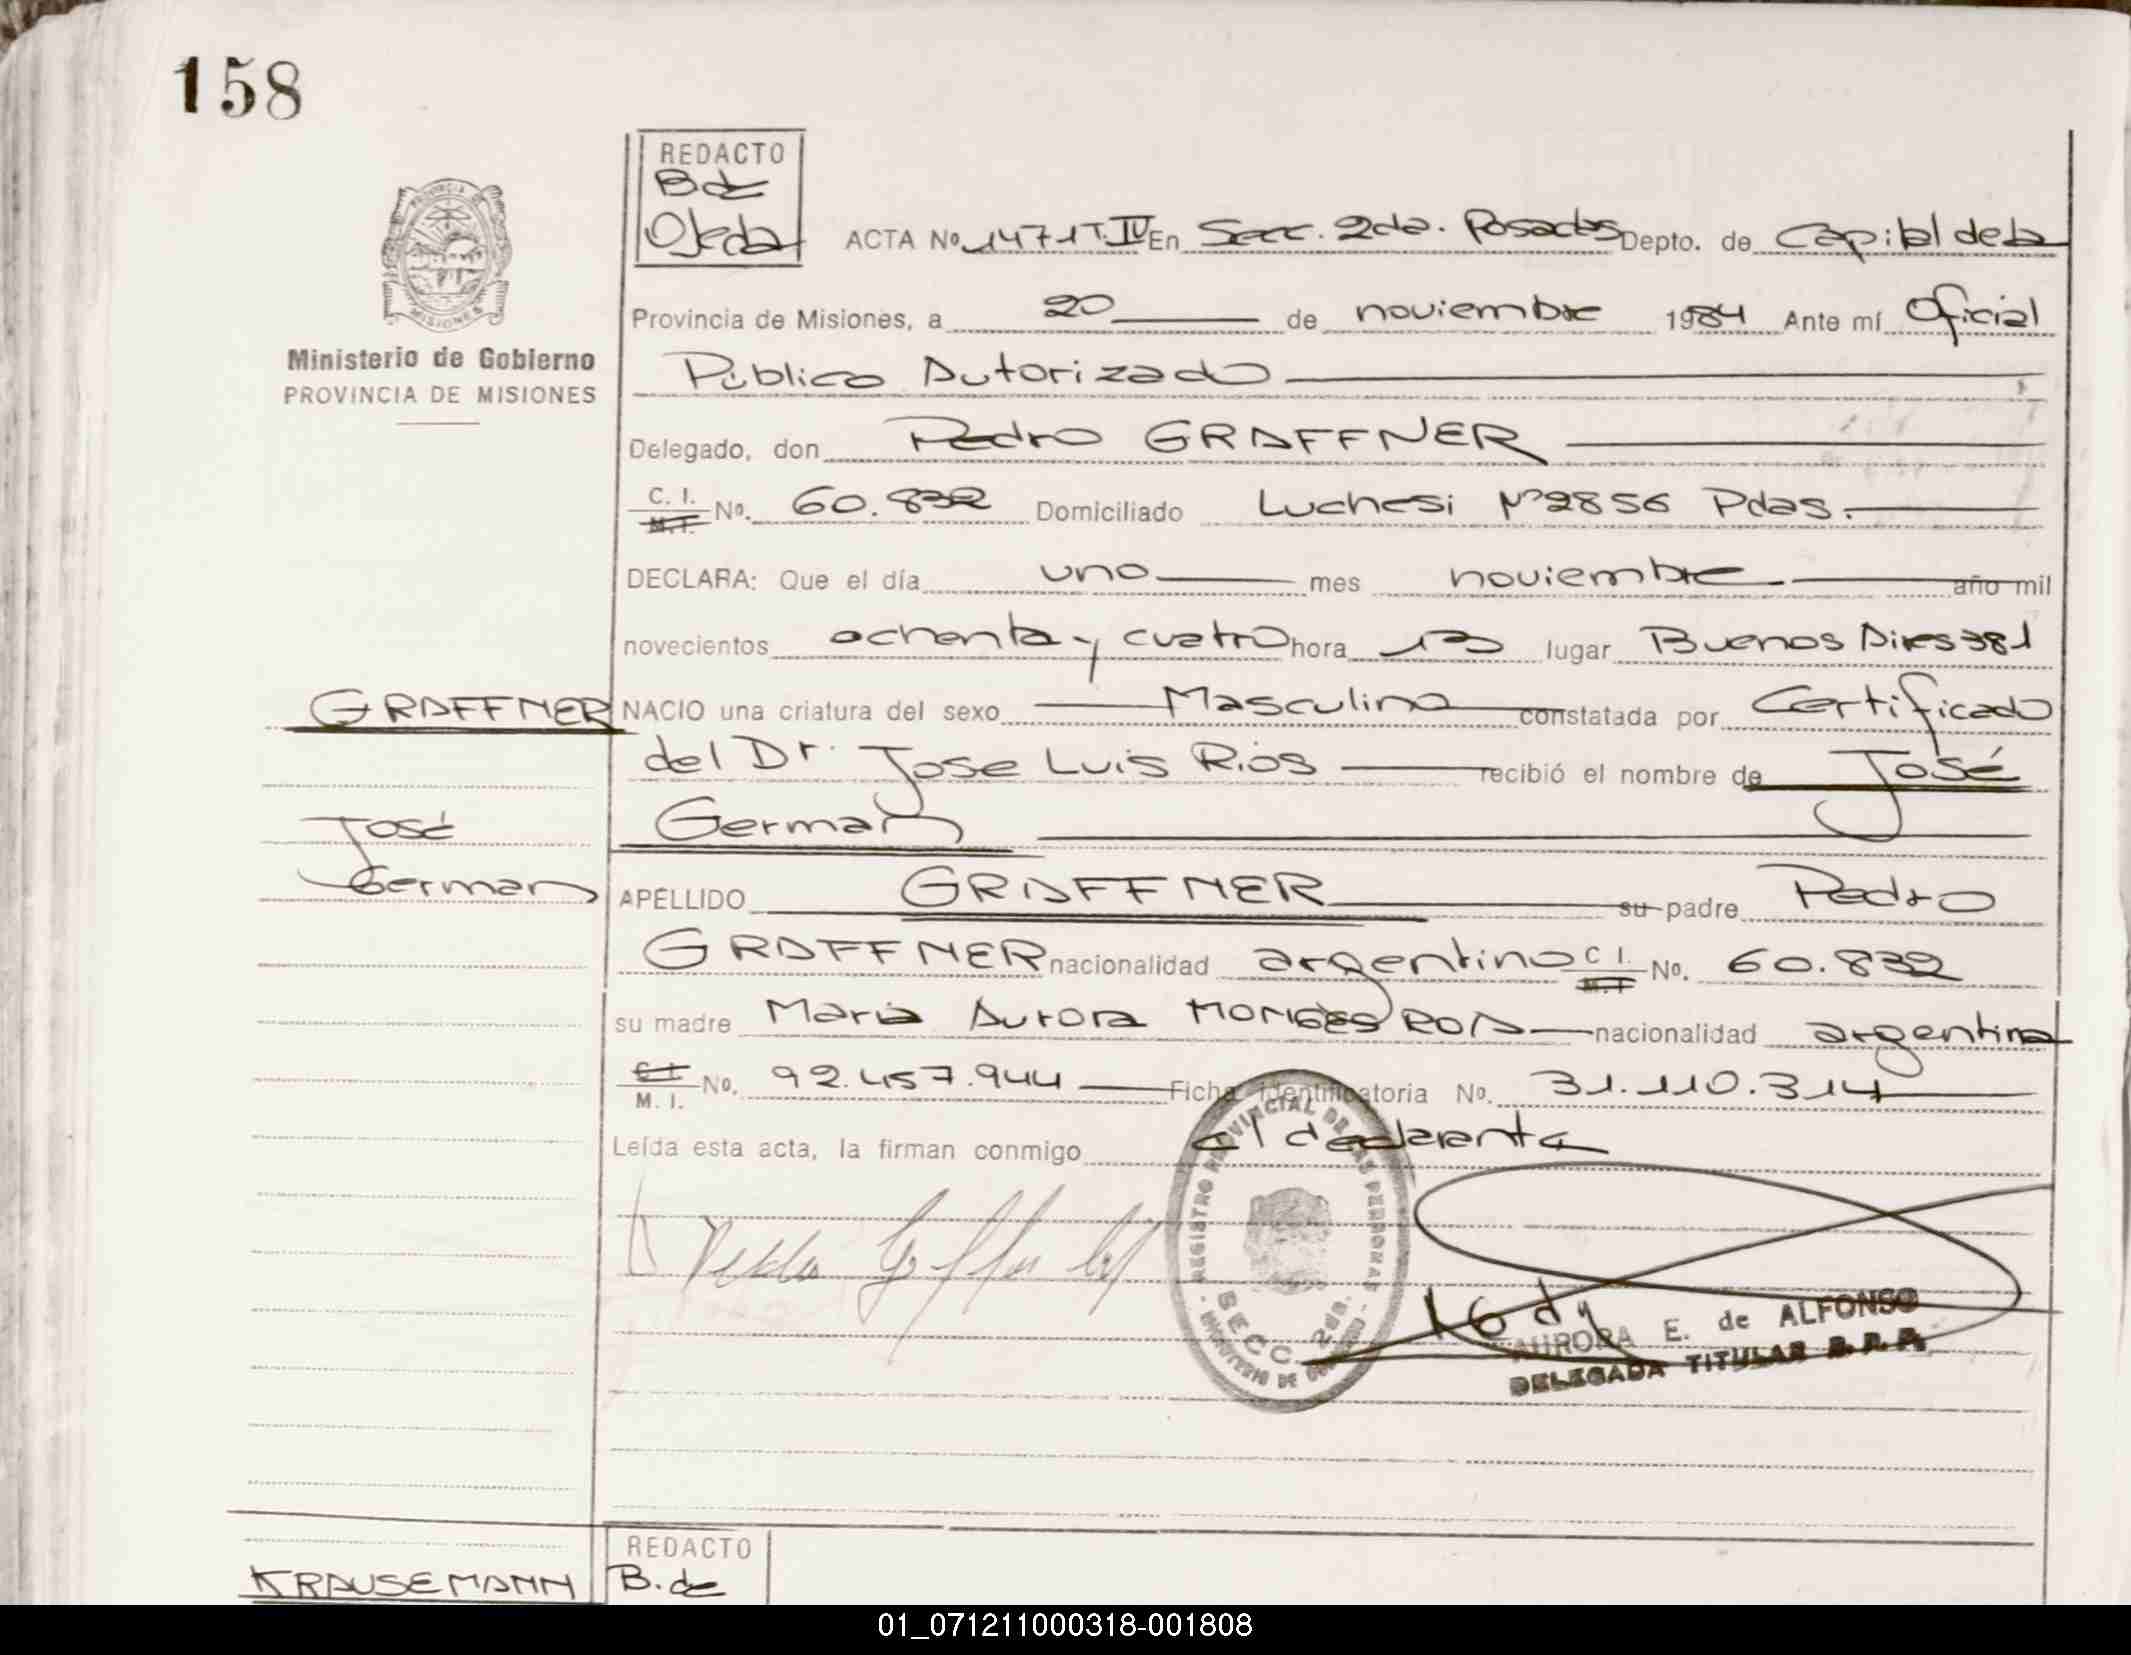 158
REDACTO
B de
Ojeda
ACTA No 1471 T. IV En Secc. 2da. Posadas Depto. de Capital de la
Provincia de Misiones, a 20 de noviembre 1984 Ante mí Oficial
Ministerio de Gobierno
PROVINCIA DE MISIONES
Público Autorizado
Delegado, don Pedro GRAFFNER
C. I. M. I. No. 60.832 Domiciliado Luchesi Nº 2856 Pdas.
DECLARA: Que el día uno mes noviembre año mil
novecientos ochenta y cuatro hora 13 lugar Buenos Aires 381
GRAFFNER
NACIO una criatura del sexo Masculino constatada por Certificado
del Dr. Jose Luis Rios recibió el nombre de José
German
José
German
APELLIDO GRAFFNER su padre Pedro
GRAFFNER nacionalidad argentino C I. M. I No. 60.832
su madre Maria Aurora MONGES ROA nacionalidad argentina
C I. M. I. No. 92.457.944 Ficha identificatoria No. 31.110.314
Leída esta acta, la firman conmigo el declarante
REGISTRO PROVINCIAL DE LAS PERSONAS
SECC. 2da.
MINISTERIO DE GOBIERNO
AURORA E. de ALFONSO
DELEGADA TITULAR R. P. P.
REDACTO
KRAUSEMANN
B. de
01_071211000318-001808